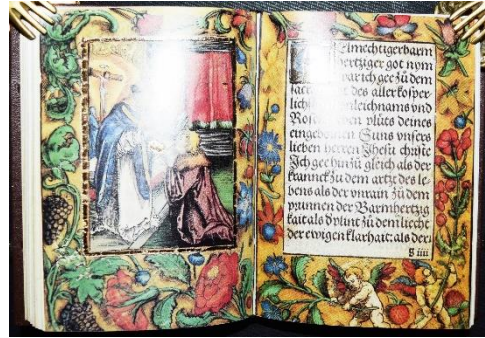 lmechtigerbarm
hertziger got nym
war ich gee zu dem
sacr des allerkosper
lich enleichnams vnd
Rosen ben pluts deines
eingebornen Suns vnsers
lieben herren Jhesu christe
Ich gee hinzu gleich als der
kranck zu dem artzt des le
bens als der vnrain zu dem
prunnen der Barmhertzig
kait als d plint zu dem liecht
der ewigen klarhait: als der
g iiii